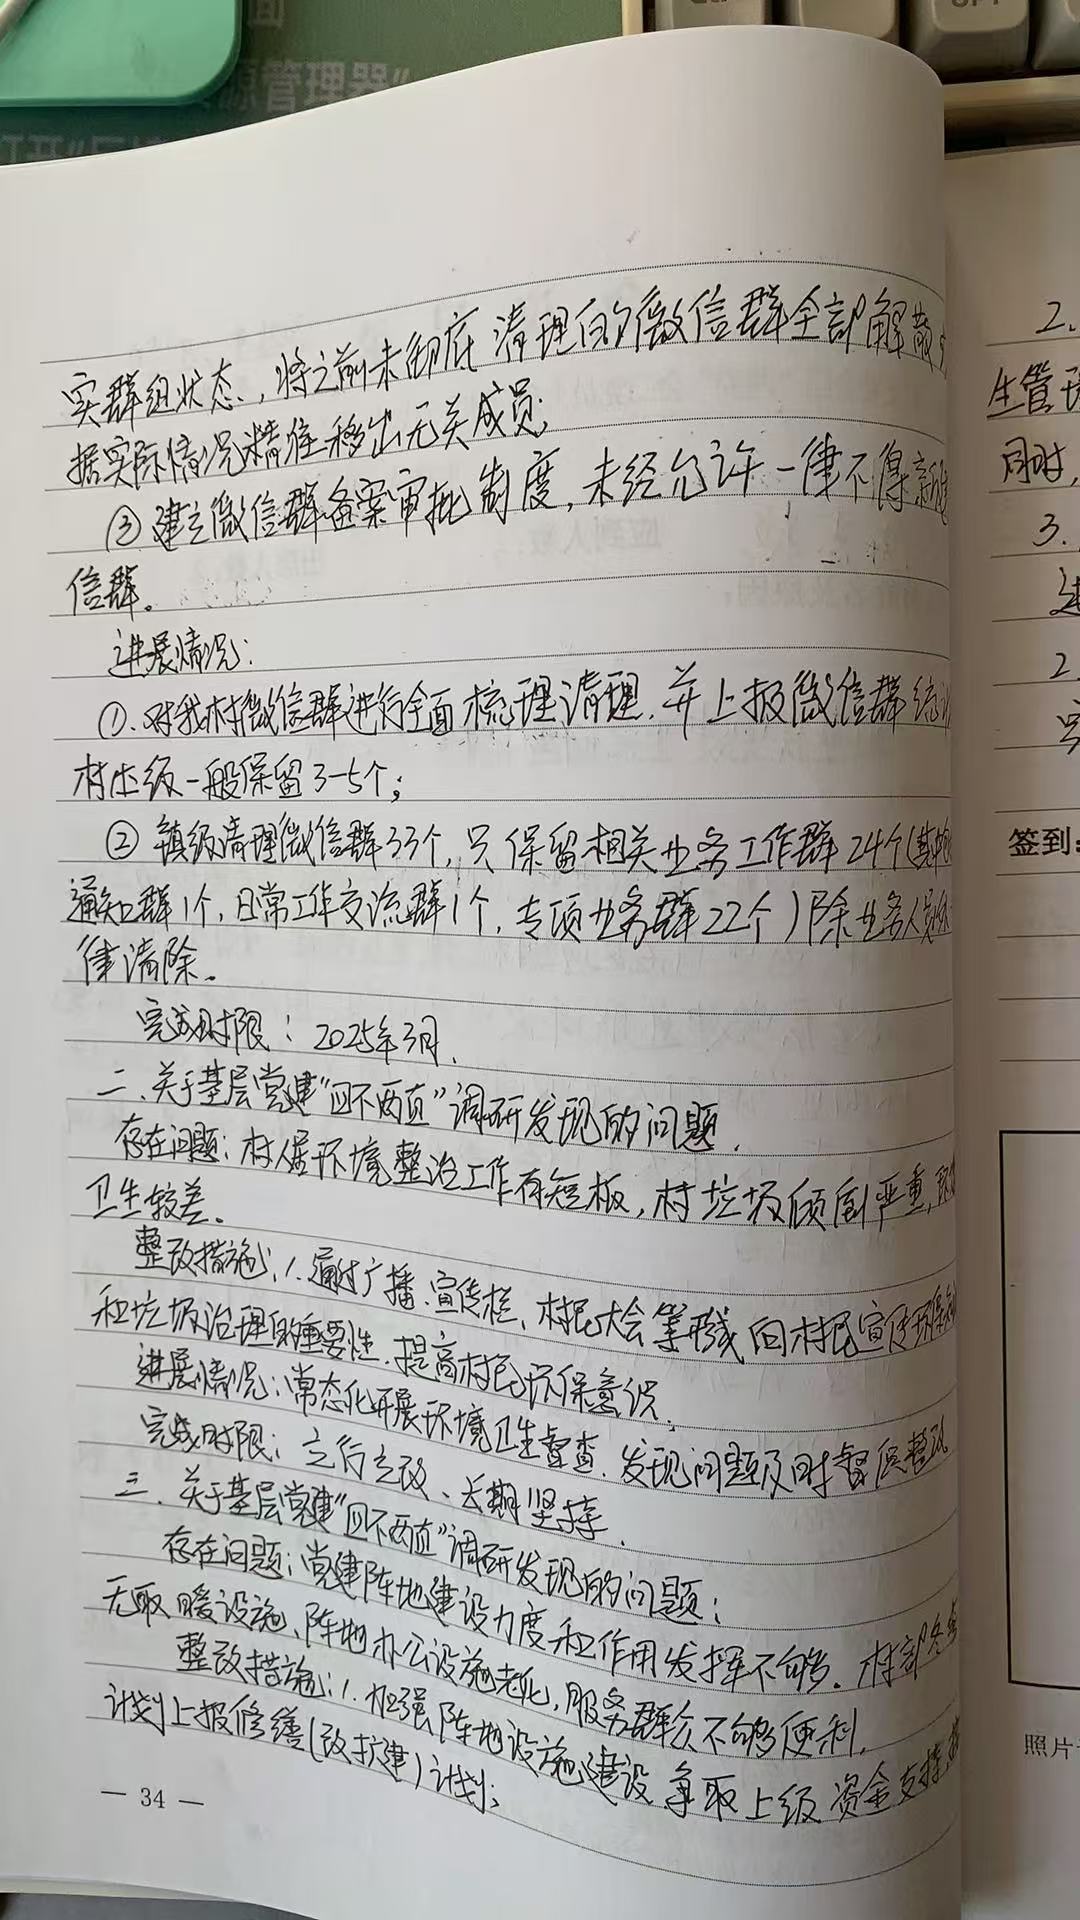 实群组状态，将之前未彻底清理的微信群全部解散
据实际情况精准移出无关成员；
③建立微信群备案审批制度，未经允许一律不得新建
信群。
进展情况：
①.对我村微信群进行全面梳理清理，并上报微信群统
村出级一般保留3-5个；
②镇级清理微信群33个，只保留相关业务工作群24个（其中
通知群1个，日常工作交流群1个，专项业务群22个）除业务人员外
律清除。
完成时限：2025年3月.
二.关于基层党建“四不两直”调研发现的问题.
存在问题：村居环境整治工作有短板，村垃圾倾倒严重，
卫生较差。
整改措施：1.通过广播、宣传栏、村民大会等形式向村民宣传环保
和垃圾治理的重要性，提高村民环保意识.
进展情况：常态化开展环境卫生督查，发现问题及时督促整改
完成时限：立行立改、长期坚持.
三.关于基层党建“四不两直”调研发现的问题：
存在问题：党建阵地建设力度和作用发挥不够。村部冬季
无取暖设施、阵地办公设施老化，服务群众不够便利.
整改措施：1.加强阵地设施建设，争取上级资金支持，
计划上报修缮（改扩建）计划；
— 34 —
2.
生管理
同时，
3.
2.
签到：
照片